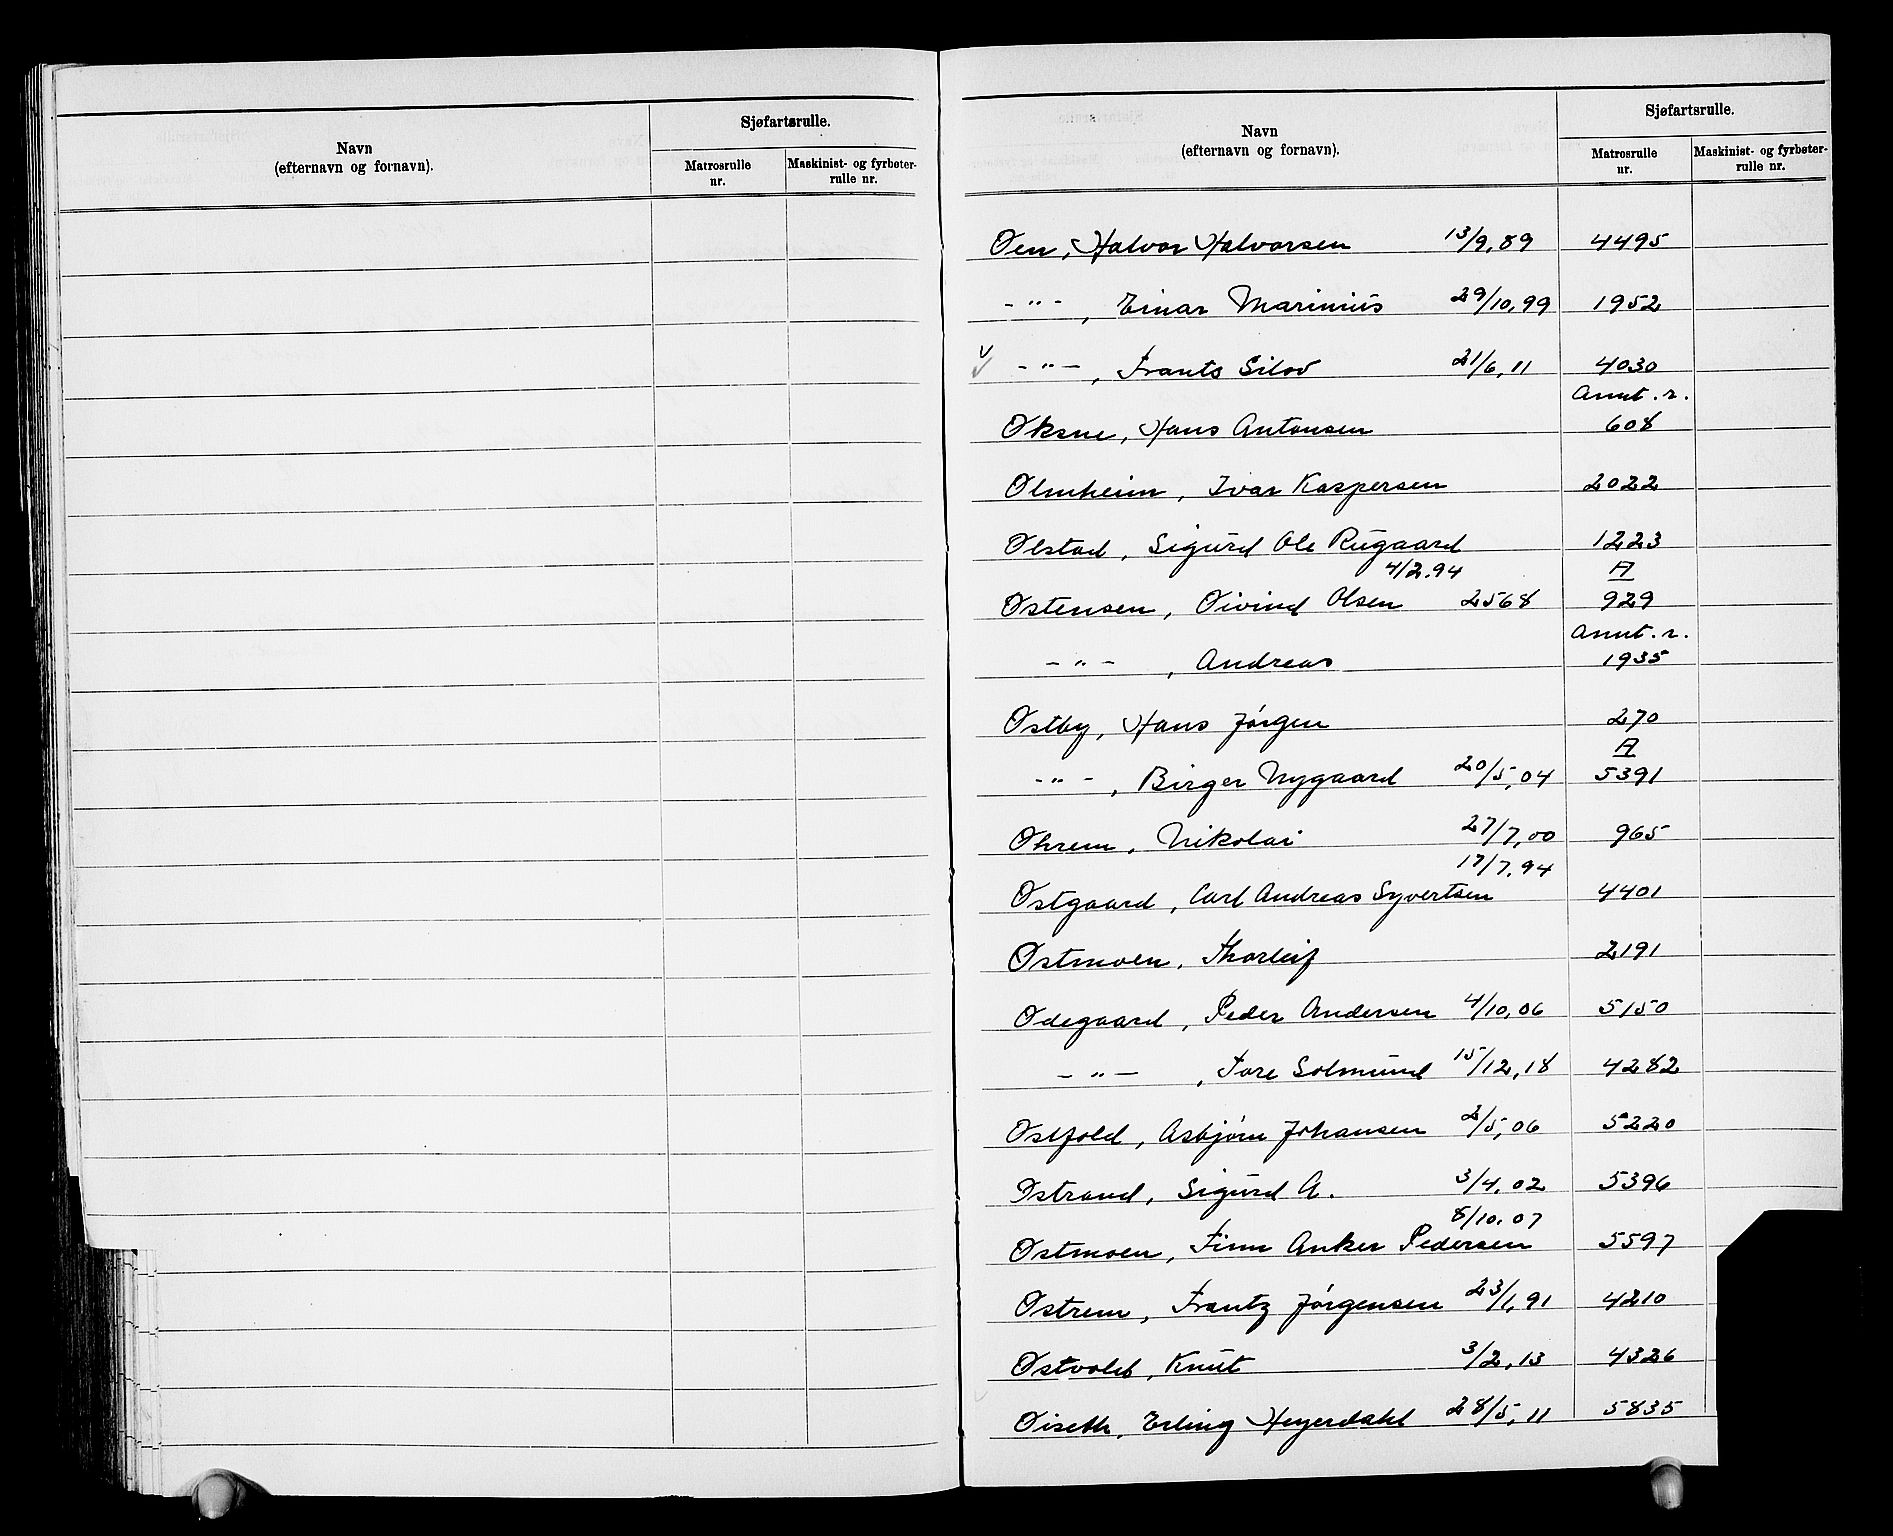 Sjøfartsrulle.
Navn
(efternavn og fornavn).
Matrosrulle
nr.
Maskinist- og fyrbøter-
rulle nr.
Sjøfartsrulle.
Navn
(efternavn og fornavn).
Matrosrulle
nr.
Maskinist- og fyrbøter-
rulle nr.
Øen, Halvor Halvorsen 13/9,89 4495
-"-, Einar Marinius 29/10,99 1952
-"-, Frants Silov 21/6,11 4030
Annt.r.
Øksne, Hans Antonsen 608
Ølmheim, Ivar Kaspersen 2022
Ølstad, Sigurd Ole Rugaard 1223
4/2.94 A
Østensen, Øivind Olsen 2568 929
Annt.r.
-"-, Andreas 1935
Østby, Hans Jörgen 270
A
-"-, Birger Nygaard 20/5,04 5391
Øhrem, Nikolai 27/7,00 965
17/7.94
Østgaard, Carl Andreas Syvertsen 4401
Østmoen, Thorleif 2191
Ødegaard, Peder Andersen 4/10,06 5150
-"-, Tore Solmund 15/12,18 4282
Østfold, Asbjørn Johansen 2/5,06 5220
Østrand, Sigurd A. 3/4,02 5396
8/10.07
Østmoen, Finn Anker Pedersen 5597
Østrem, Frantz Jörgensen 23/1,91 4210
Østvold, Knut 3/2,13 4326
Øiseth, Erling Heyerdahl 28/5,11 5835